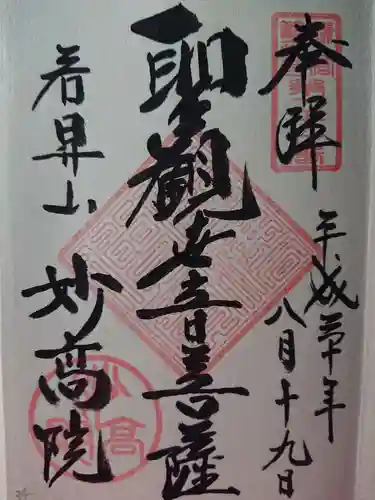 奉拝
平成三十年
八月十九日
聖観世音菩薩
岩昇山
妙高院